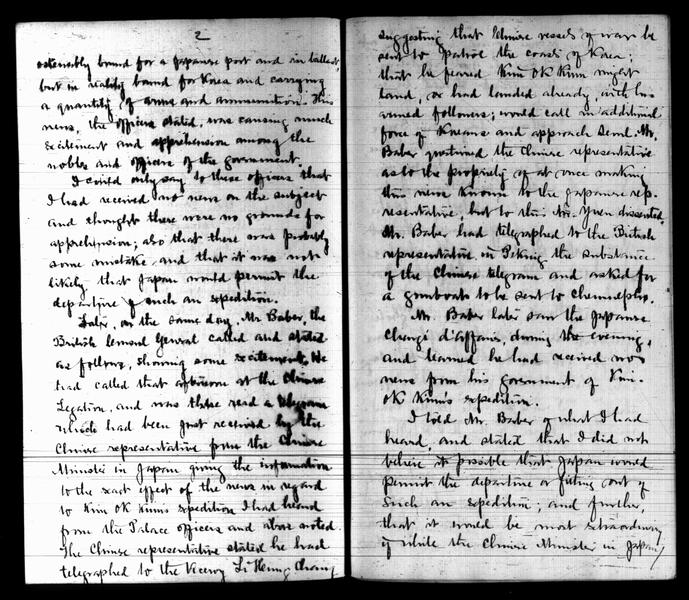 2
ostensibly bound for a Japanese port and in ballast,
but in reality bound for Korea and carrying
a quantity of arms and ammunition. This
news, the officers stated, was causing much
excitement and apprehension among the
nobles and officers of the government.
I could only say to these officers that
I had received no news on the subject
and thought there were no grounds for
apprehension; also that there was probably
some mistake and that it was not
likely that Japan would permit the
departure of such an expedition.
Later, on the same day, Mr. Baber, the
British Consul General called and stated
as follows, showing some excitement. He
had called that afternoon at the Chinese
Legation, and was there read a telegram
which had been just received by the
Chinese representative from the Chinese
Minister in Japan giving the information
to the exact effect of the news in regard
to Kim Ok Kium's expedition I had heard
from the Palace officers and above noted.
The Chinese representative stated he had
telegraphed to the Viceroy Li Hung Chang
suggesting that Chinese vessels of war be
sent to patrol the coast of Korea;
that he feared Kim Ok Kium might
land, or had landed already, with his
armed followers; would call in additional
force of Koreans and approach Seoul. Mr.
Baber questioned the Chinese representative
as to the propriety of at once making
this news known to the Japanese rep-
resentative, but to this Mr. Yuen dissented.
Mr. Baber had telegraphed to the British
representative in Peking the substance
of the Chinese telegram and asked for
a gunboat to be sent to Chemulpo.
Mr. Baber later saw the Japanese
Chargé d'Affaires, during the evening,
and learned he had received no
news from his government of Kim
Ok Kium's expedition.
I told Mr. Baber of what I had
heard, and stated that I did not
believe it possible that Japan would
permit the departure or fitting out of
such an expedition; and further,
that it would be most extraordinary
if while the Chinese Minister in Japan,